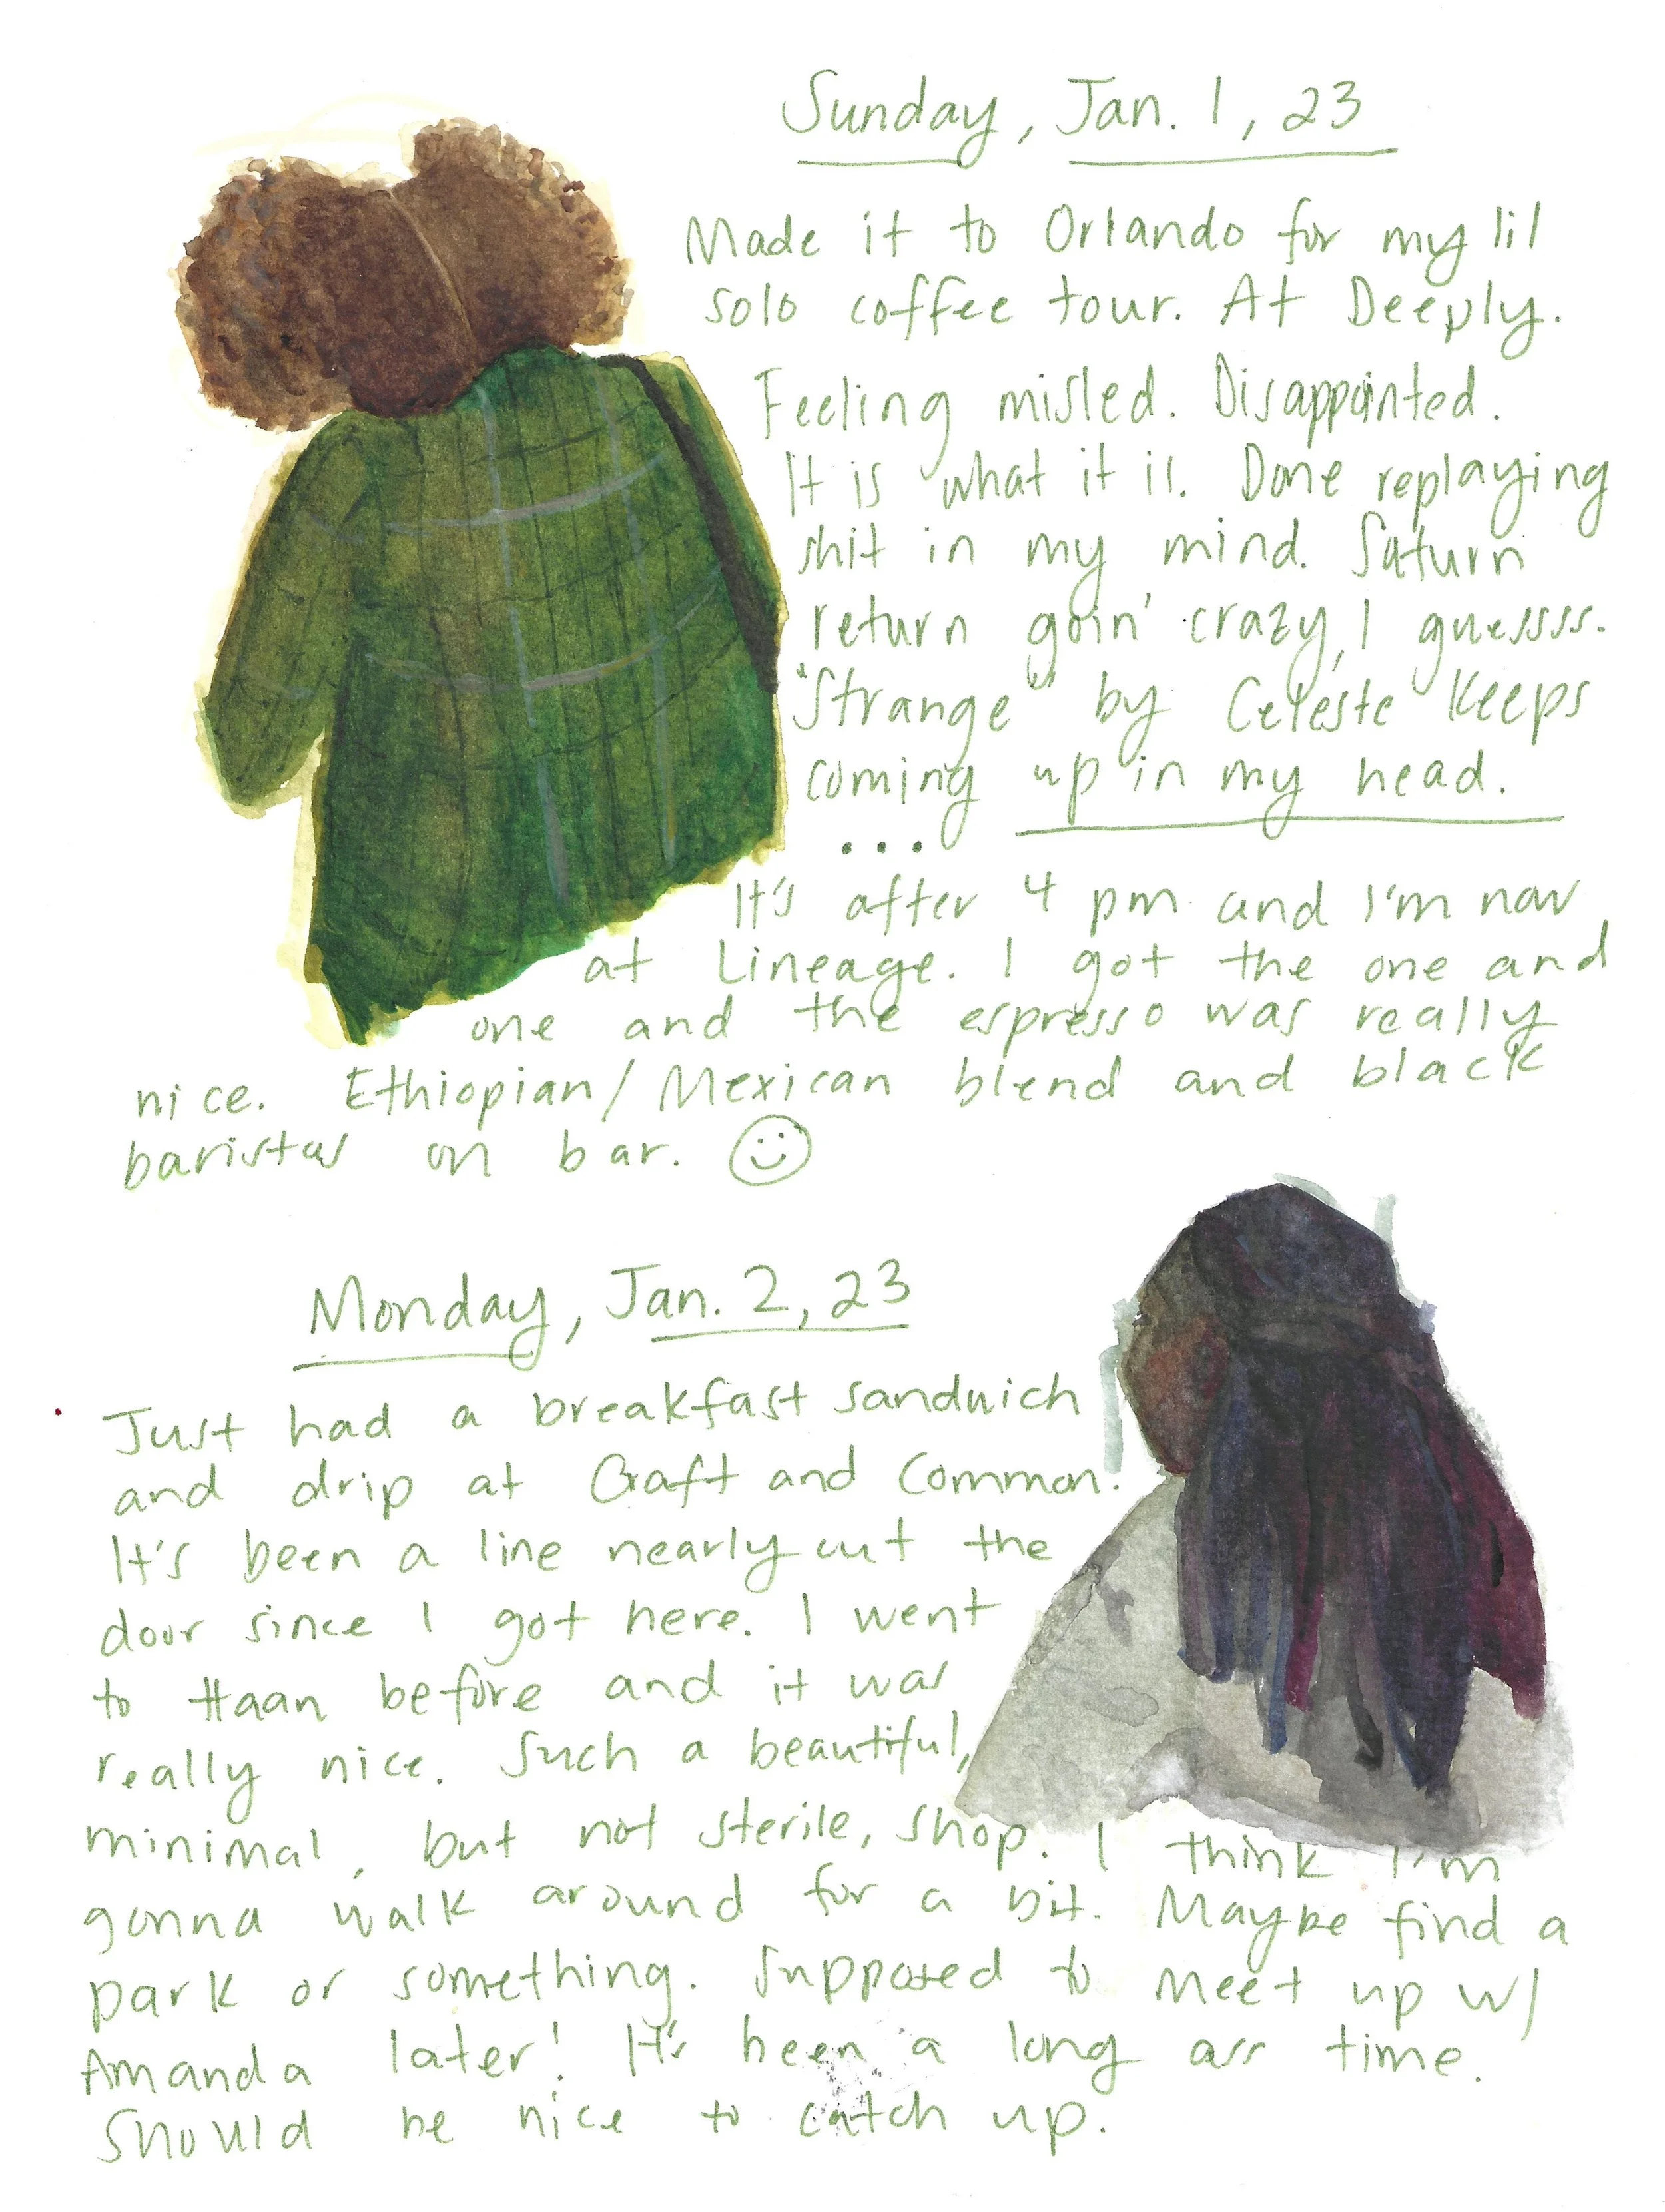 Sunday, Jan. 1, 23
Made it to Orlando for my lil
solo coffee tour. At Deeply.
Feeling misled. Disappointed.
It is what it is. Done replaying
shit in my mind. Saturn
return goin' crazy, I guessss.
"Strange" by Celeste keeps
coming up in my head.
...
It's after 4 pm and I'm now
at Lineage. I got the one and
one and the espresso was really
nice. Ethiopian/Mexican blend and black
baristas on bar. ☺
Monday, Jan. 2, 23
Just had a breakfast sandwich
and drip at Craft and Common.
It's been a line nearly out the
door since I got here. I went
to Haan before and it was
really nice. Such a beautiful,
minimal, but not sterile, shop. I think I'm
gonna walk around for a bit. Maybe find a
park or something. Supposed to meet up w/
Amanda later! It's been a long ass time.
Should be nice to catch up.